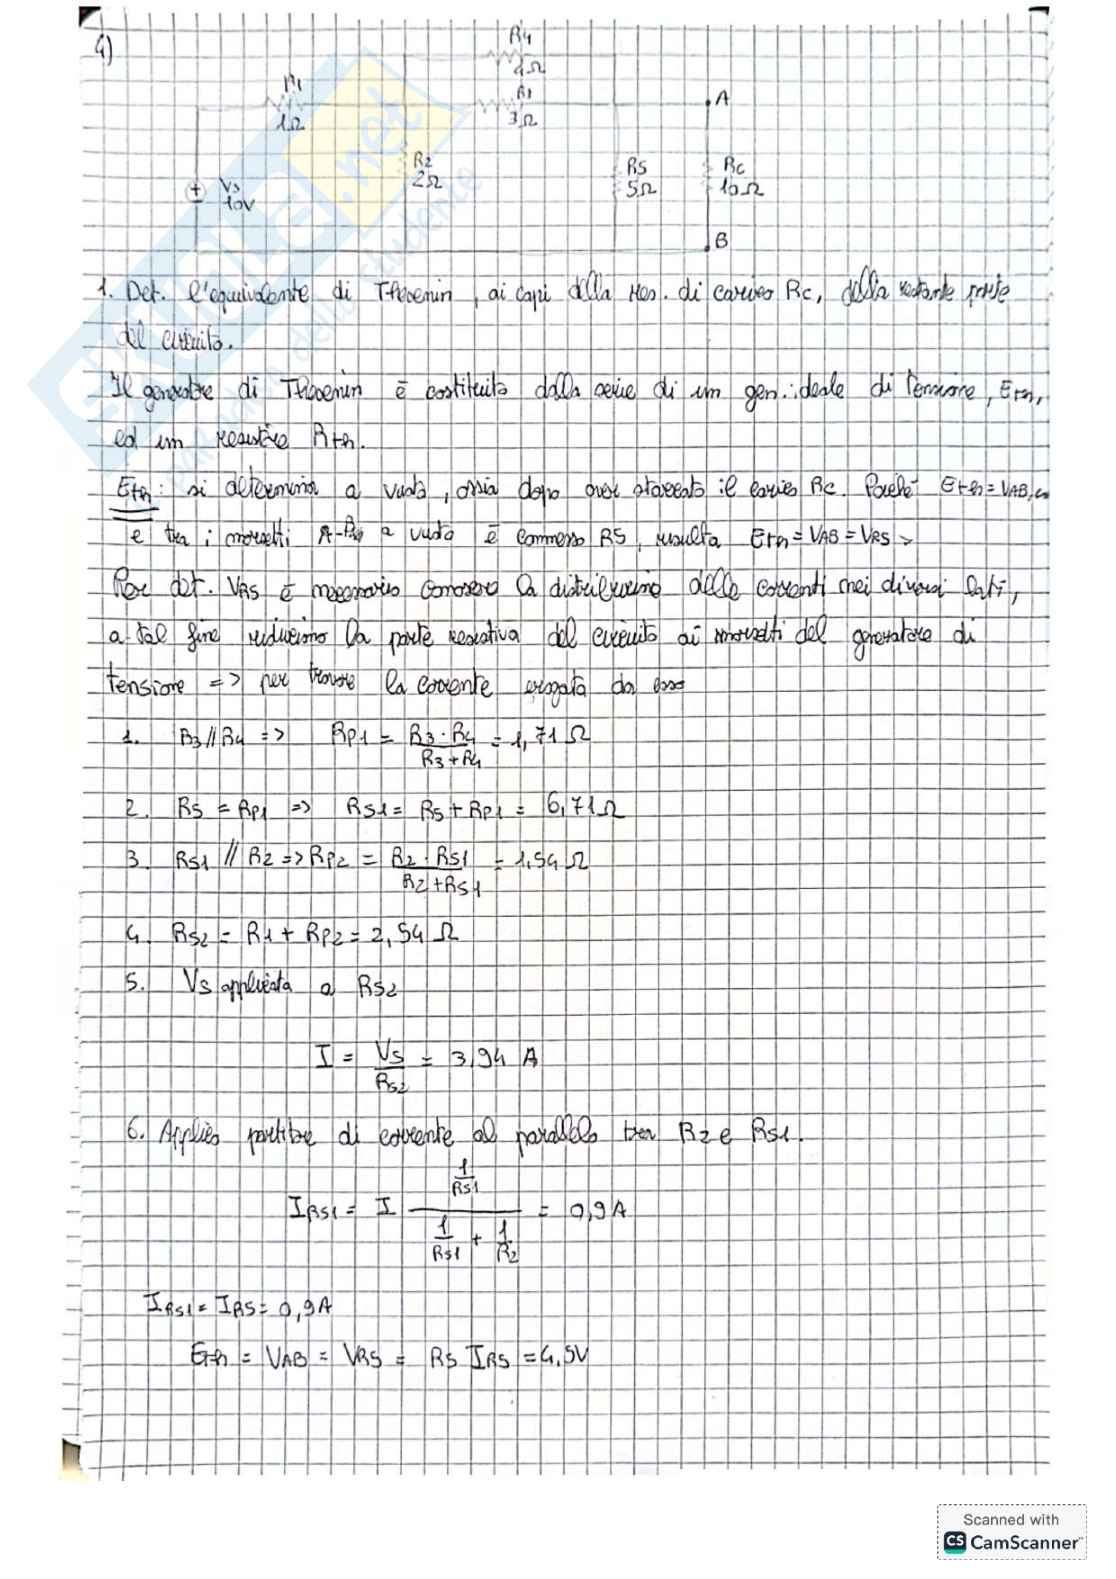 4)
R4
4Ω
R1
1Ω
R3
3Ω
A
R2
2Ω
R5
5Ω
Rc
10Ω
+ Vs
10V
B
1. Det. l'equivalente di Thevenin, ai capi della res. di carico Rc, della restante parte
del circuito.
Il generatore di Thevenin è costituito dalla serie di un gen. ideale di tensione, Eth,
ed un resistore Rth.
Eth: si determina a vuoto, ossia dopo aver staccato il carico Rc. Poiché Eth = VAB,
e tra i morsetti A-B a vuoto è connesso R5, risulta Eth = VAB = VR5
Per det. VR5 è necessario conoscere la distribuzione delle correnti nei diversi lati,
a tal fine riduciamo la parte resistiva del circuito ai morsetti del generatore di
tensione => per trovare la corrente erogata da esso
1. R3//R4 => RP1 = R3·R4 / R3+R4 = 1,71 Ω
2. R5 = RP1 => RS1 = R5 + RP1 = 6,71Ω
3. RS1 // R2 => RP2 = R2·RS1 / R2+RS1 = 1,54 Ω
4. RS2 = R1 + RP2 = 2,54 Ω
5. Vs applicata a RS2
I = Vs / RS2 = 3,94 A
6. Applico partitore di corrente al parallelo tra R2 e RS1.
IRS1 = I 1/RS1 / 1/RS1 + 1/R2 = 0,9A
IRS1 = IR5 = 0,9A
Eth = VAB = VR5 = R5 IR5 = 4,5V
Scanned with
CS CamScanner